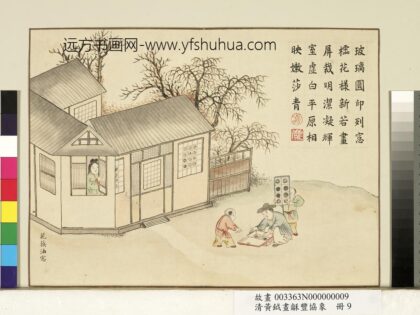 远方书画网-www.yfshuhua.com
玻璃圓印到窓
櫺花樣新若畫
屏裁明潔凝輝
室虛白平原相
映嫩莎青
故畫 003363N000000009
清黃鉞畫龢豐協象 冊 9